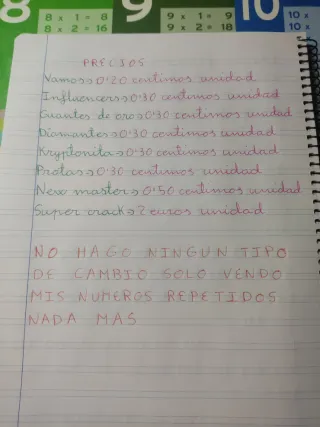 8
8 x 1 = 8
8 x 2 = 16
9
9 x 1 = 9
9 x 2 = 18
10
10 x
10 x
PRECIOS
Vamos→0'20 centimos unidad
Influencers→0'30 centimos unidad
Guantes de oro→0'30 centimos unidad
Diamantes→0'30 centimos unidad
Kryptonita→0'30 centimos unidad
Protas→0'30 centimos unidad
New master→0'50 centimos unidad
Super crack→2 euros unidad
NO HAGO NINGUN TIPO
DE CAMBIO SOLO VENDO
MIS NUMEROS REPETIDOS
NADA MAS